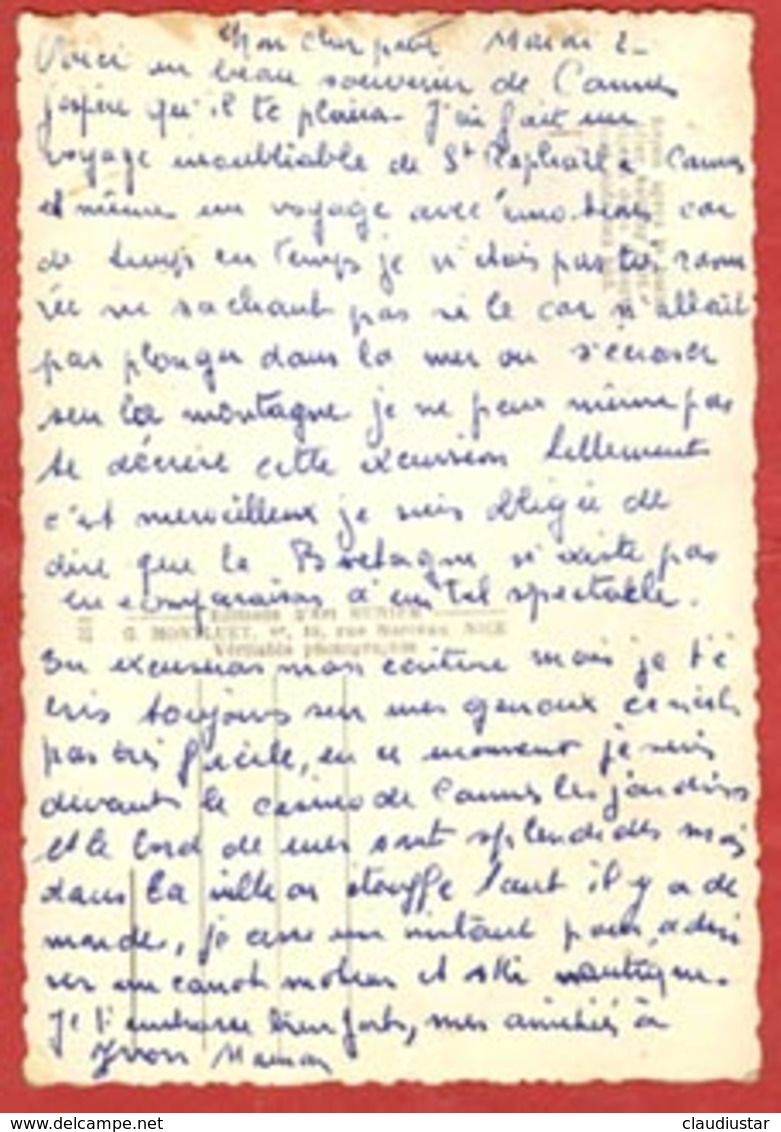 Mon cher petit Mardi 2 -
Voici un beau souvenir de Cannes
j'espère qu'il te plaira - J'ai fait un
voyage inoubliable de St Raphaël à Cannes
et même un voyage avec émotions car
de temps en temps je n'étais pas très rassu
rée ne sachant pas si le car n'allait
pas plonger dans la mer ou s'écraser
sur la montagne je ne peux même pas
te décrire cette excursion tellement
c'est merveilleux je suis obligée de
dire que la Bretagne n'existe pas
en comparaison d'un tel spectacle.
Editions d'Art MUNIER
G. MONTLUET, 15, rue Marceau, NICE
Véritable photographie
Tu excuseras mon écriture mais je t'é
cris toujours sur mes genoux ce n'est
pas très facile, en ce moment je suis
devant le casino de Cannes les jardins
et le bord de mer sont splendides mais
dans la ville on étouffe tant il y a de
monde, je cesse un instant pour admi
rer un canot moteur et ski nautique.
Je t'embrasse bien fort, mes amitiés à
Yvon Maman
claudiustar